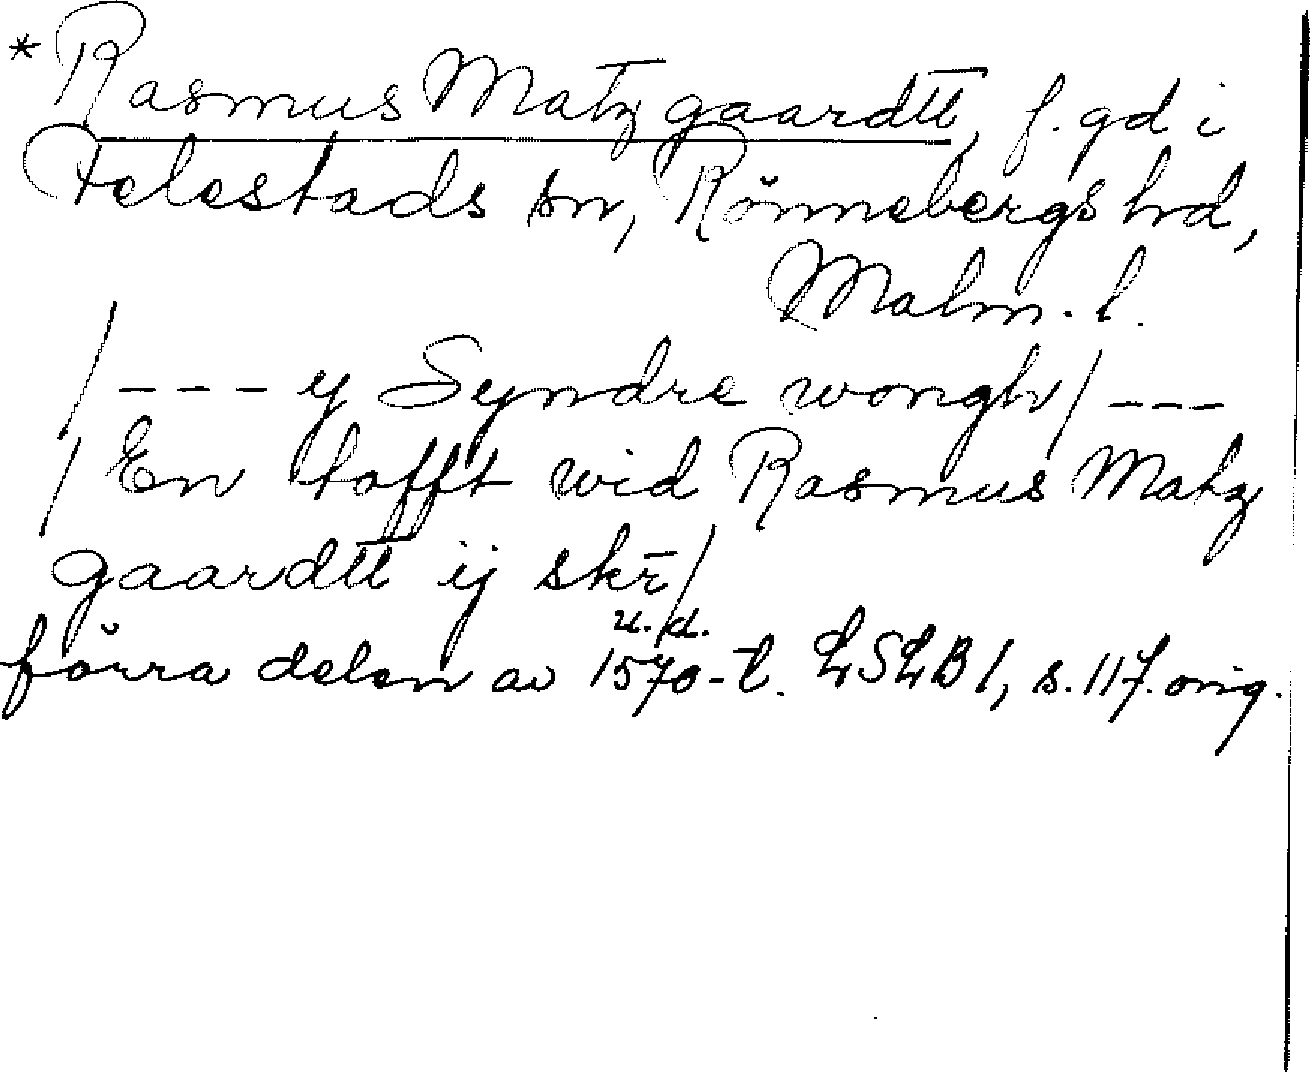 * Rasmus Matz gaardtt, f. gd i
Felestads sn, Rönnebergs hd,
Malm. l.
/--- y Syndre wongh/ ---
/En tofft wid Rasmus Matz
gaardtt ij skr̄/
u. d.
förra delen av 1570-t. LSLB 1, s. 117. orig.